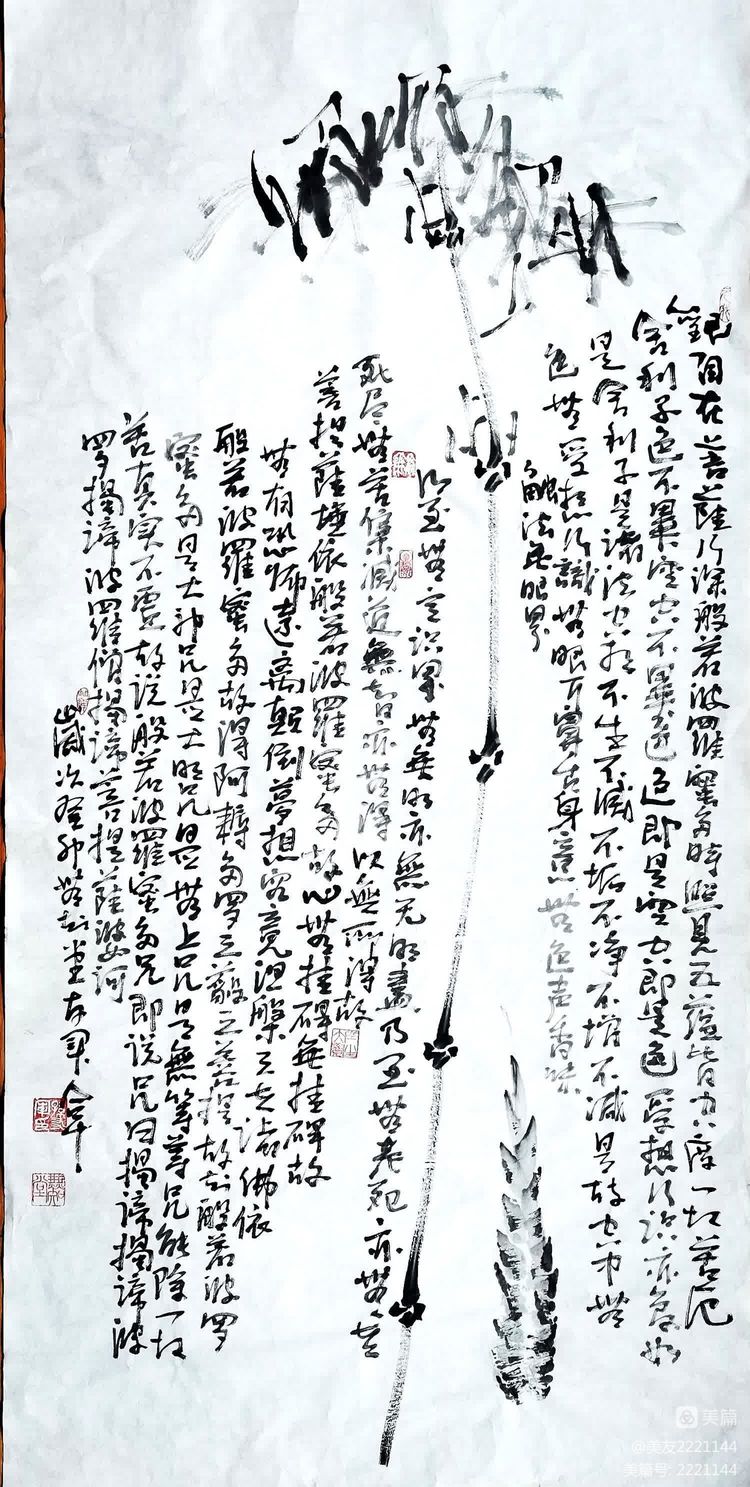 觀自在菩薩行深般若波羅蜜多時照見五蘊皆空度一切苦厄
舍利子色不異空空不異色色即是空空即是色受想行識亦復如
是舍利子是諸法空相不生不滅不垢不净不增不减是故空中無
色無受想行識無眼耳鼻舌身意無色声香味
觸法無眼界
乃至無意識界無無明亦無无明盡乃至無老死亦無老
死尽無苦集滅道無智亦無得以無所得故
菩提薩埵依般若波羅蜜多故心無挂碍無挂碍故
無有恐怖遠離顛倒夢想究竟涅槃三世諸佛依
般若波羅蜜多故得阿耨多罗三藐三菩提故知般若波罗
蜜多是大神咒是大明咒是無上咒是無等等咒能除一切
苦真实不虚故说般若波羅蜜多咒即说咒曰揭諦揭諦波
罗揭諦波罗僧揭諦菩提薩婆訶
歲次癸卯
美篇
@美友2221144
美篇号: 2221144